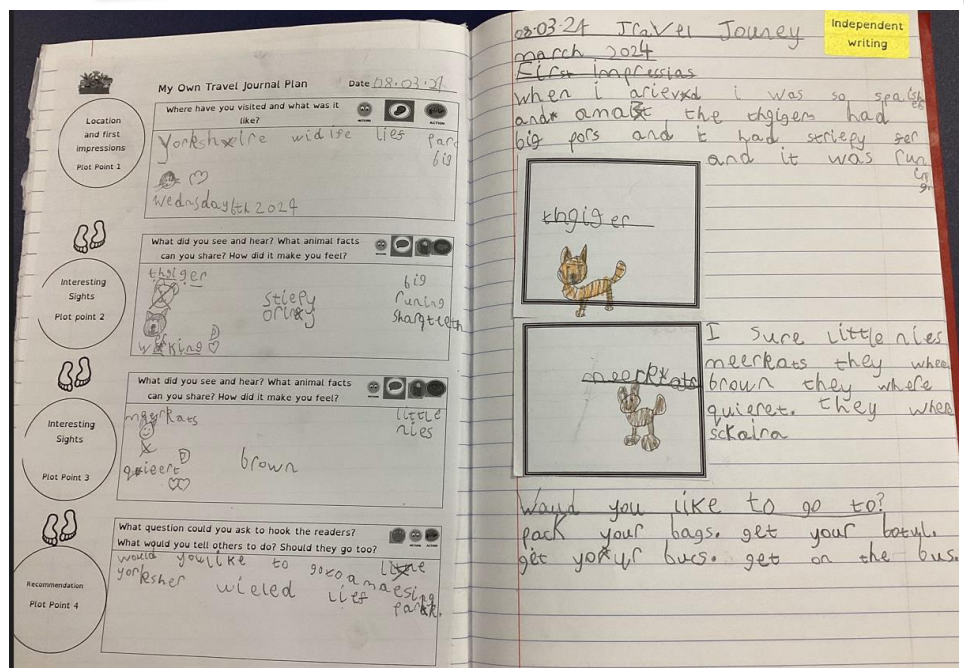 My Own Travel Journal Plan
Date 08.03.24
Location
and first
impressions
Plot Point 1
Where have you visited and what was it
like?
yorkshire widife lief parc
big
wednasday 6th 2024
Interesting
Sights
Plot point 2
What did you see and hear? What animal facts
can you share? How did it make you feel?
thgiger
stiepy
orinxy
big
runing
sharpteeth
wrking
Interesting
Sights
Plot Point 3
What did you see and hear? What animal facts
can you share? How did it make you feel?
meerkats
little
nies
quieert
brown
Recommendation
Plot Point 4
What question could you ask to hook the readers?
What would you tell others to do? Should they go too?
would youlike to goto a
yorksher wieled lief amaesing
park.
Independent
writing
08.03.24 Travel Jouney
march 2024
First impressias
when i arieved i was so
and the thgigers had
big pors and it had striepy fer
and it was run
in
g
thgiger
meerkats
I sure little nies
meerkats they wheer
brown they where
quieret. they wheer
sckaira
Woud you like to go to?
pack your bags. get your botyl.
get your bucs. get on the bus.